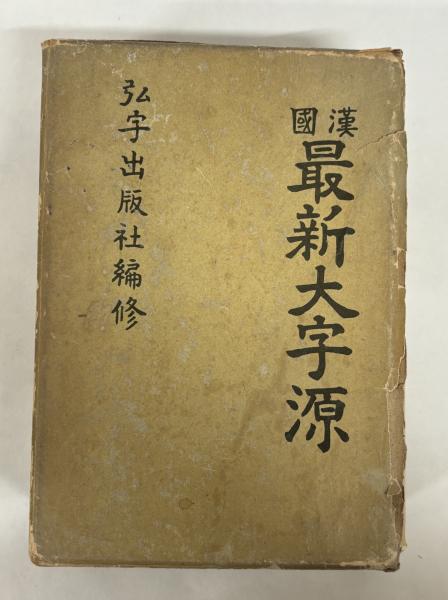 漢國
最新大字源
弘字出版社編修